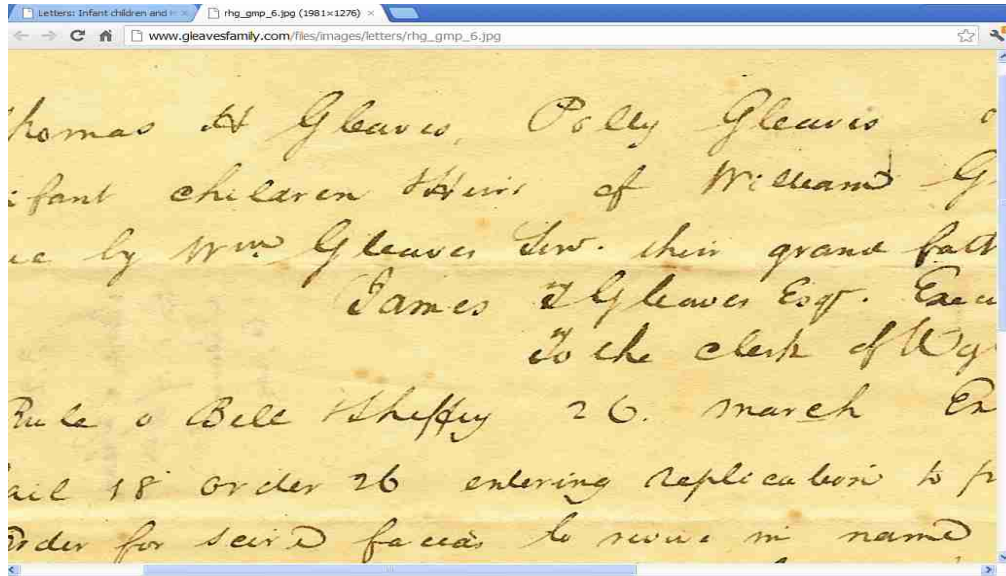 Letters: Infant children and H
rhg_gmp_6.jpg (1981×1276)
www.gleavesfamily.com/files/images/letters/rhg_gmp_6.jpg
homas H Gleaves, Polly Gleaves
fant children & Heirs of William G
by Wm Gleaves Senr. their grand fath
James T Gleaves Esqr. Execu
To the clerk of Wy
Rule o Bill & Sheffey 26. march En
ail 18 order 26 entering replication to p
order for scire facias to revive in name